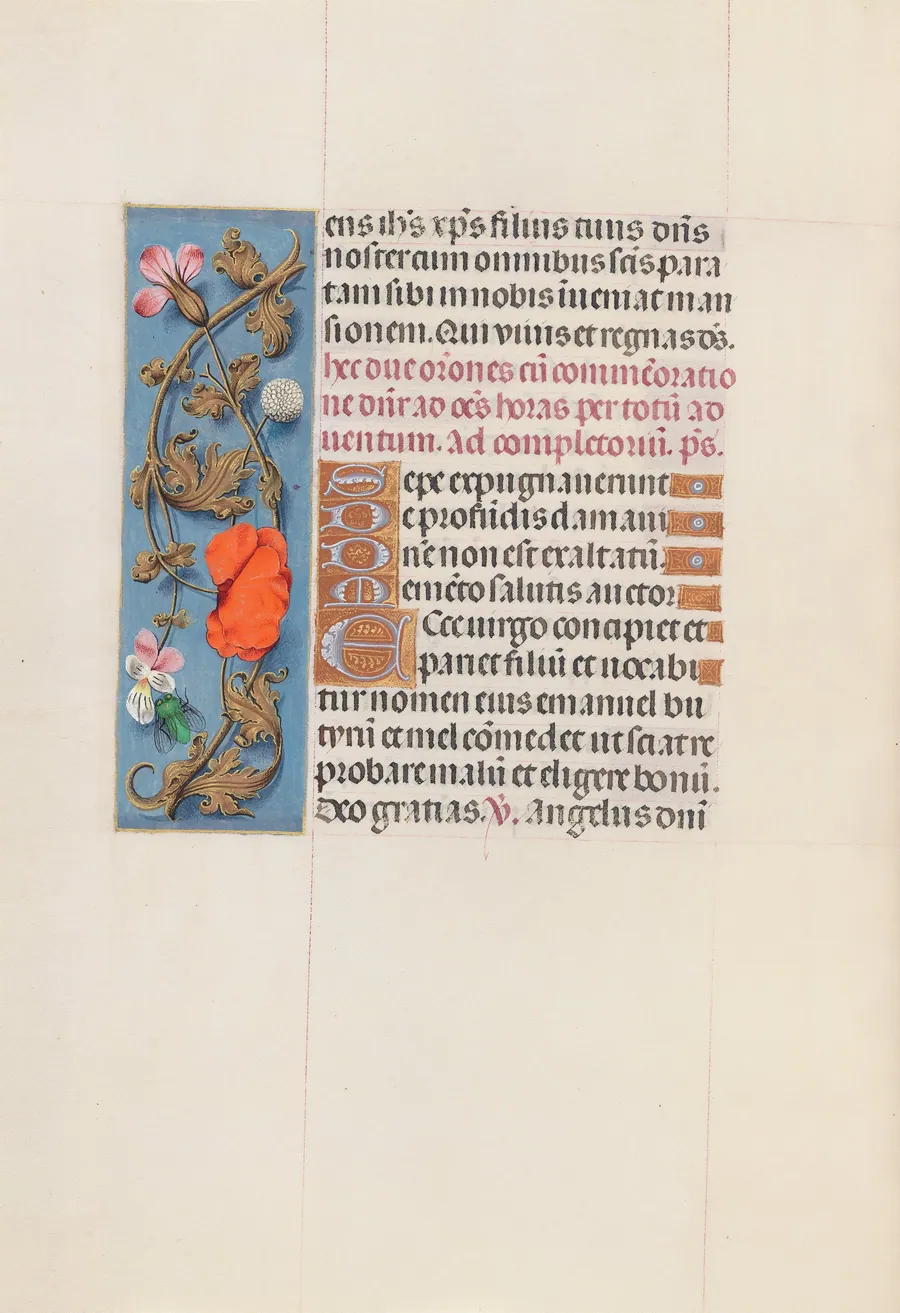 ens ih̄s xp̄s filius tuus dn̄s
noster cum omnibus sc̄is para
tam sibi in nobis īueniat man
sionem. Qui viuis et regnas ds̄.
hec due or̄ones cū commēoratio
ne dn̄r ad oēs horas per totū ad
uentum. Ad completoriū. ps̄.
Sepe expugnauerunt
De profūdis clamaui
Dn̄e non est exaltatū.
Memēto salutis auctor
Ecce uirgo concipiet et
pariet filiū et uocabi
tur nomen eius emanuel bu
tyrū et mel cōmedet ut sciat re
probare malū et eligere bonū.
Deo gratias. V̄. Angelus dn̄i